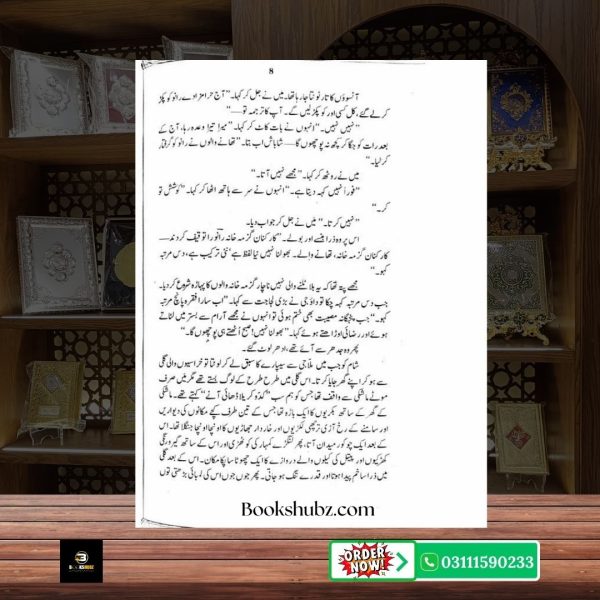 8
آنسوؤں کا تار ٹوٹتا جا رہا تھا۔ میں نے جل کر کہا۔ ”آج حرامزادے رانو کو پکڑ
کر لے گئے، کل کسی اور کو پکڑ لیں گے۔ آپ کا ترجمہ تو——“
”نہیں نہیں۔“ انہوں نے بات کاٹ کر کہا۔ ”میرا تیرا وعدہ رہا، آج کے
بعد رات کو جگا کر کچھ نہ پوچھوں گا—— شاباش اب بتا۔ ”تھانے والوں نے رانو کو گرفتار
کر لیا۔“
میں نے روٹھ کر کہا۔ ”مجھے نہیں آتا۔“
”فوراً نہیں کہہ دیتا ہے۔“ انہوں نے سر سے ہاتھ اٹھا کر کہا۔ ”کوشش تو
کر۔“
”نہیں کرتا۔“ میں نے جل کر جواب دیا۔
اس پر وہ ذرا ہنسے اور بولے۔ ”کارکنان گزمہ خانہ رانو را توقیف کردند——
کارکنان گزمہ خانہ، تھانے والے۔ بھولنا نہیں نیا لفظ ہے‘ نئی ترکیب ہے، دس مرتبہ
کہو۔“
مجھے پتہ تھا کہ یہ بلا ٹلنے والی نہیں ناچار گزمہ خانہ والوں کا پہاڑہ شروع کر دیا۔
جب دس مرتبہ کہہ چکا تو داؤ جی نے بڑی لجاجت سے کہا۔ ”اب سارا فقرہ پانچ مرتبہ
کہو۔“ جب پنجگانہ مصیبت بھی ختم ہوئی تو انہوں نے مجھے آرام سے بستر میں لٹاتے
ہوئے اور رضائی اوڑھاتے ہوئے کہا۔ ”بھولنا نہیں! صبح اٹھتے ہی پوچھوں گا۔“
پھر وہ جدھر سے آئے تھے، ادھر لوٹ گئے۔
شام کو جب میں ملا جی سے سیپارے کا سبق لے کر لوٹتا تو خراسیوں والی گلی
سے ہو کر اپنے گھر جایا کرتا۔ اس گلی میں طرح طرح کے لوگ بستے تھے مگر میں صرف
موٹے ماشکی سے واقف تھا جس کو ہم سب ”کدو کریلا ڈھائی آنے“ کہتے تھے۔ ماشکی
کے گھر کے ساتھ بکریوں کا ایک باڑہ تھا جس کے تین طرف کچے مکانوں کی دیواریں
اور سامنے کے رخ آڑی ترچھی لکڑیوں اور خار دار جھاڑیوں کا اونچا اونچا جنگلا تھا۔ اس
کے بعد ایک چوکور میدان آتا، پھر لنگڑے کمہار کی کوٹھڑی اور اس کے ساتھ گیرو رنگی
کھڑکیوں اور پیتل کی کیلوں والے دروازے کا ایک چھوٹا سا پکا مکان۔ اس کے بعد گلی
میں ذرا سا خم پیدا ہوتا اور قدرے تنگ ہو جاتی۔ پھر جوں جوں اس کی لمبائی بڑھتی توں
Bookshubz.com
ORDER NOW!
03111590233